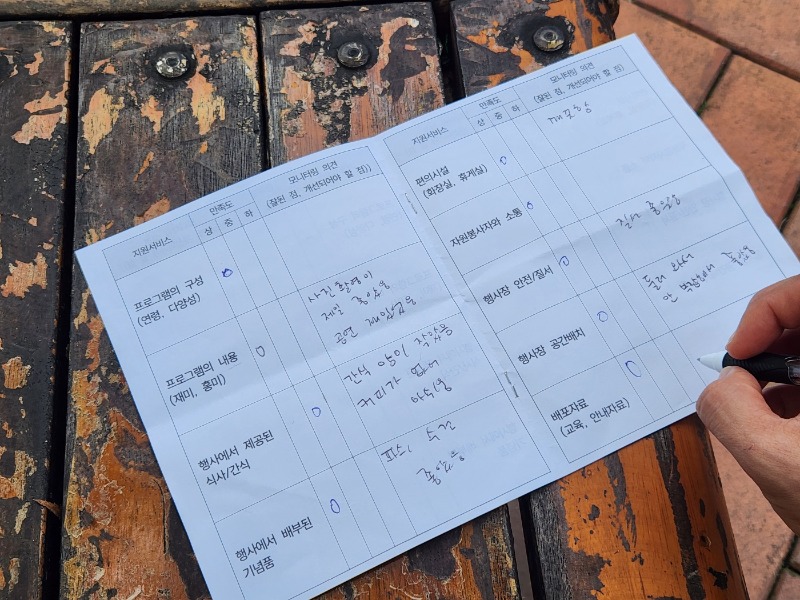 지원서비스
만족도
상 중 하
모니터링 의견
(잘된 점, 개선되어야 할 점))
프로그램의 구성
(연령, 다양성)
프로그램의 내용
(재미, 흥미)
사진촬영이
제일 좋았음
공연 재밌었음
행사에서 제공된
식사/간식
간식 양이 작았음
커피가 없어
아쉬움
행사에서 배부된
기념품
수건
좋았음
지원서비스
만족도
상 중 하
모니터링 의견
(잘된 점, 개선되어야 할 점)
편의시설
(화장실, 휴게실)
자원봉사자와 소통
행사장 안전/질서
질서 좋았음
행사장 공간배치
둘러 와서
안 박람해 좋았음
배포자료
(교육, 안내자료)